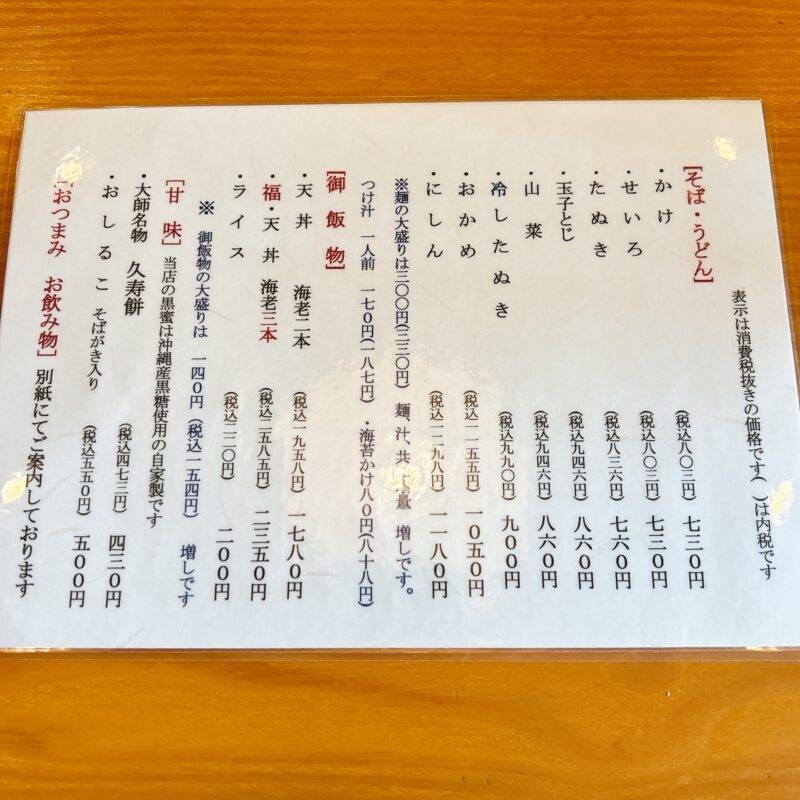 表示は消費税抜きの価格です( )は内税です
[そば・うどん]
・かけ (税込八〇三円) 七三〇円
・せいろ (税込八〇三円) 七三〇円
・たぬき (税込八三六円) 七六〇円
・玉子とじ (税込九四六円) 八六〇円
・山菜 (税込九四六円) 八六〇円
・冷したぬき (税込九九〇円) 九〇〇円
・おかめ (税込一一五五円) 一〇五〇円
・にしん (税込一二九八円) 一一八〇円
※麺の大盛りは三〇〇円(三三〇円) 麺、汁、共 量 増しです。
つけ汁 一人前 一七〇円(一八七円) ・海苔かけ八〇円(八十八円)
[御飯物]
・天丼 海老二本 (税込一九五八円) 一七八〇円
・福・天丼 海老三本 (税込二五八五円) 二三五〇円
・ライス (税込二二〇円) 二〇〇円
※ 御飯物の大盛りは 一四〇円 (税込一五四円) 増しです
[甘味] 当店の黒蜜は沖縄産黒糖使用の自家製です
・大師名物 久寿餅 (税込四七三円) 四三〇円
・おしるこ そばがき入り (税込五五〇円) 五〇〇円
[おつまみ お飲み物] 別紙にてご案内しております